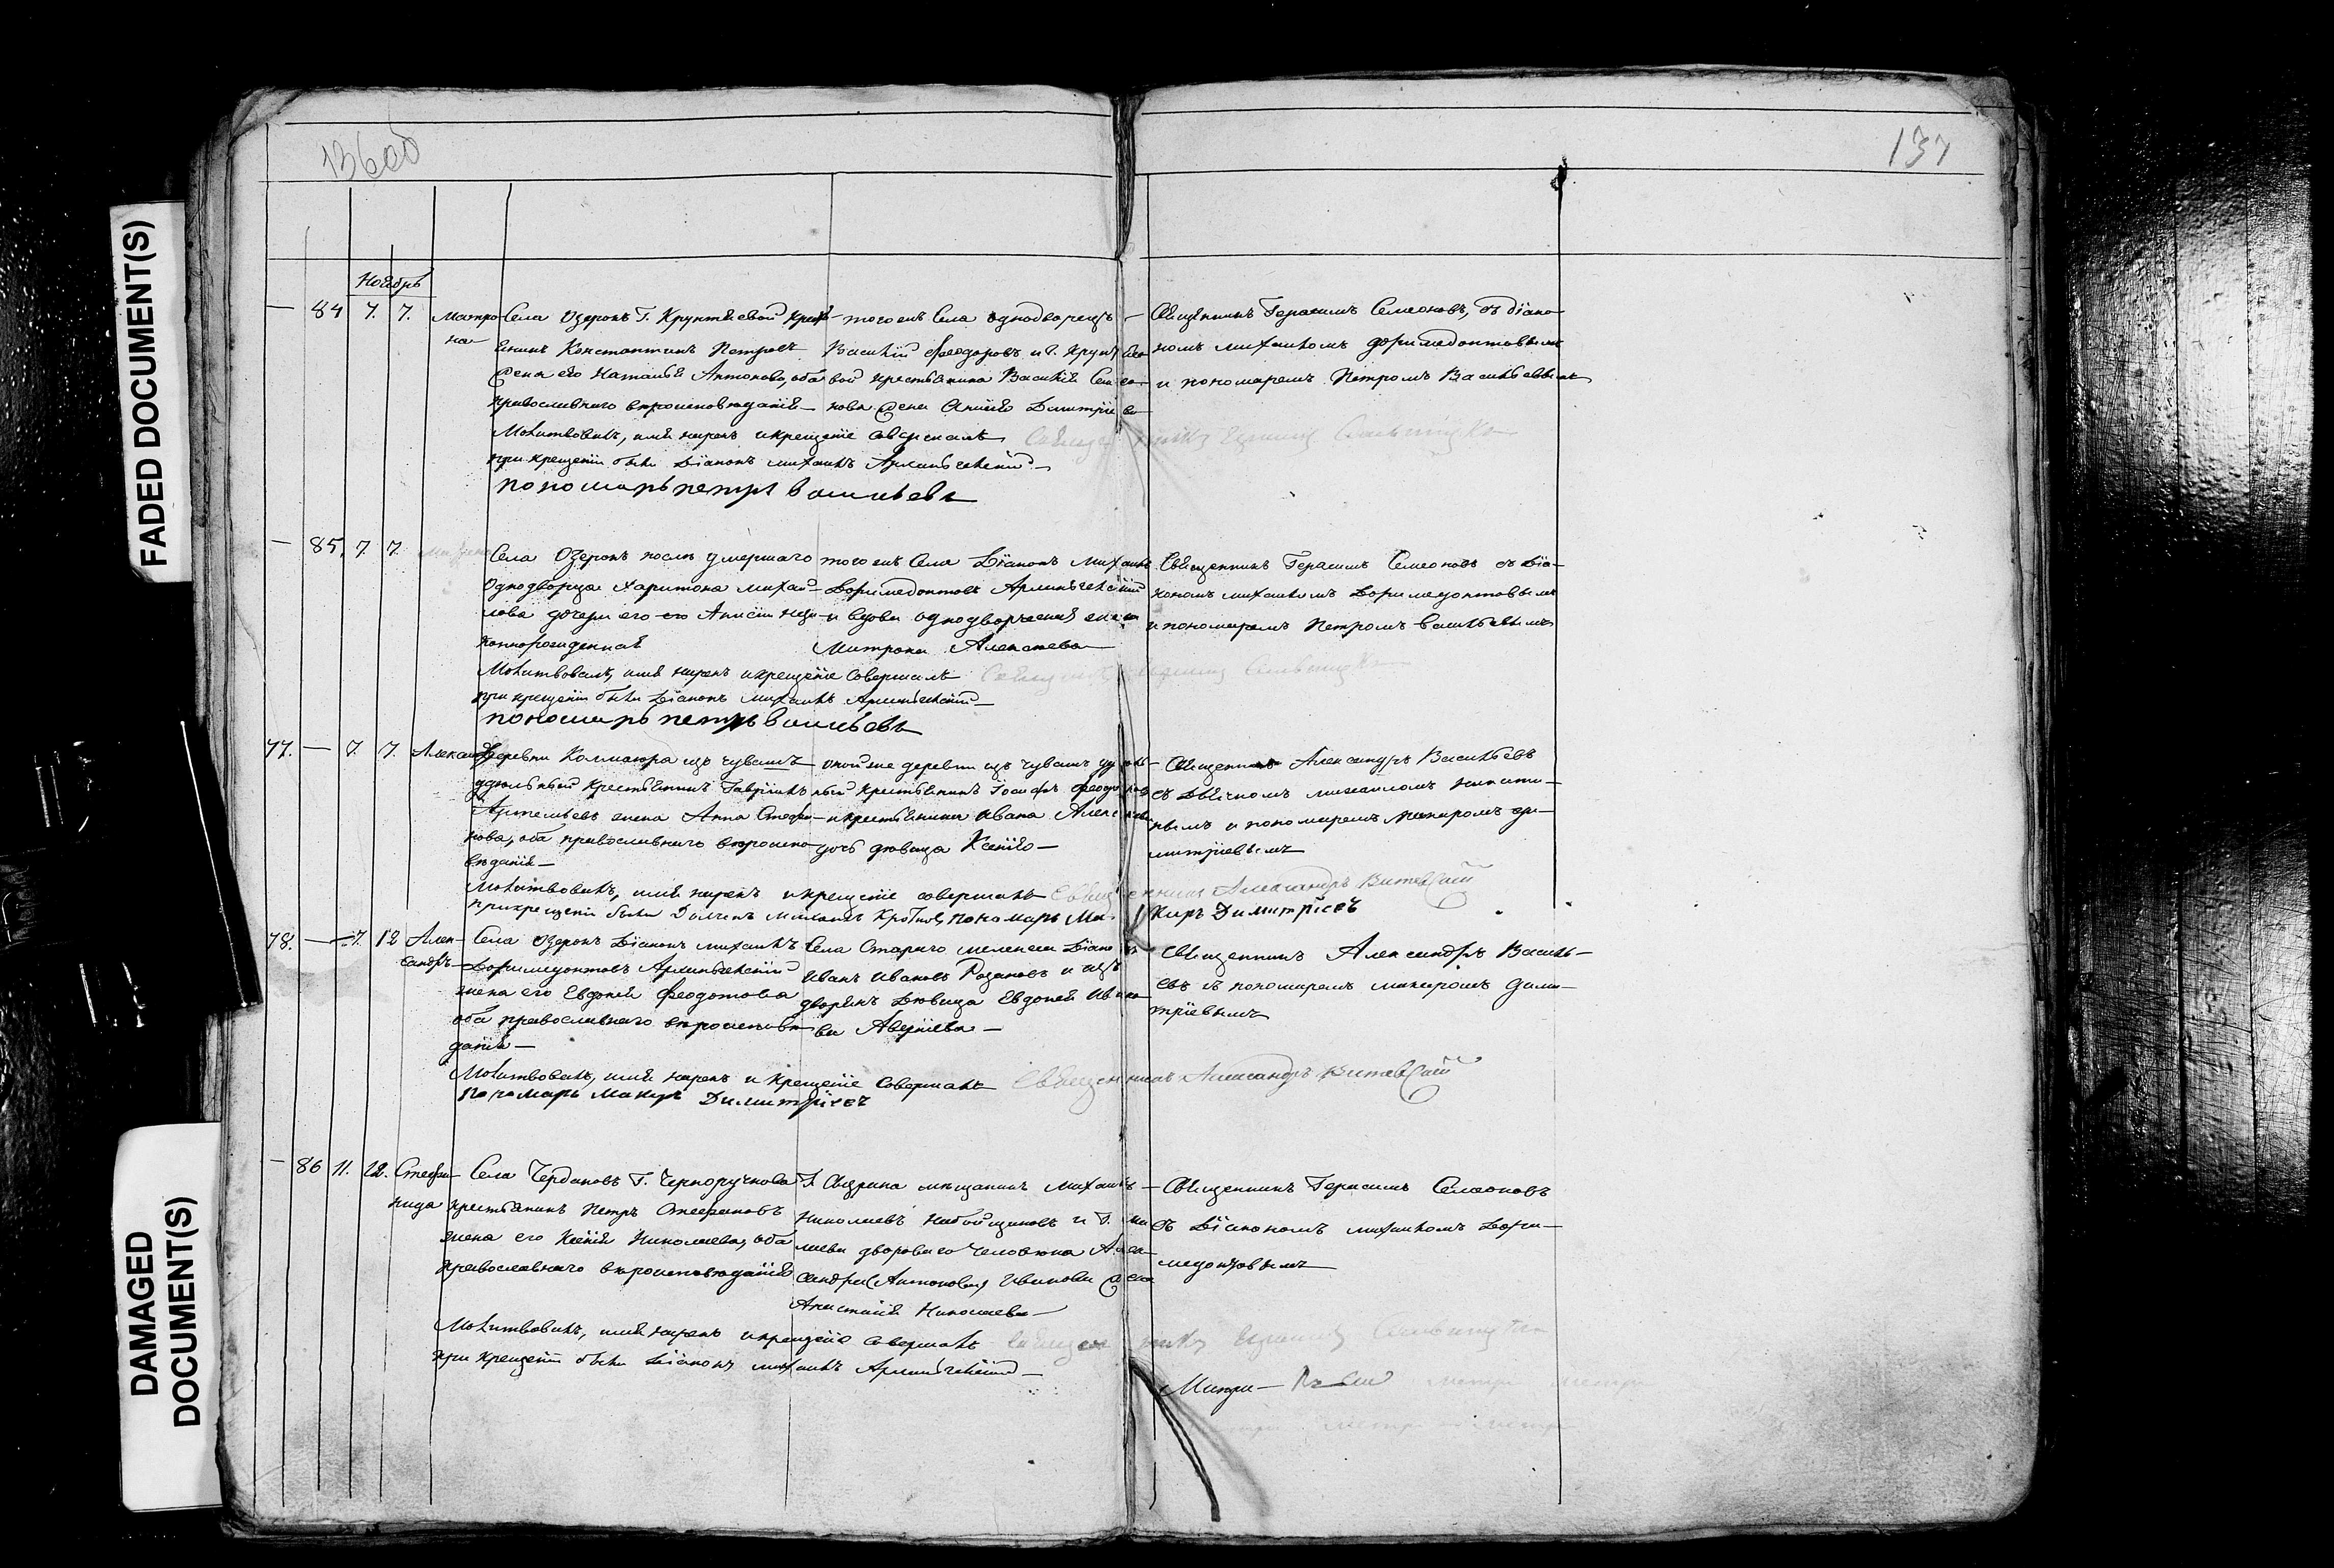 FADED DOCUMENT(S)
DAMAGED
DOCUMENT(S)
136об
137
Ноябрь
— 84 7. 7. Матро-
на
Села Озерокъ Г. Крунтяевой крест-
янинъ Константинъ Петровъ
жена его Наталья Антонова, оба
православнаго вѣроисповѣданія —
тогоже Села однодворецъ —
Василій Феодоровъ и Г.
вой крестьянина Василія Семео-
нова жена Димитріева
Священникъ Герасимъ Семеоновъ, съ діако-
номъ михаиломъ доримедонтовымъ
и пономаремъ Петромъ Васильевымъ
Молитвовалъ, имя нарекъ и крещеніе совершалъ
при крещеніи были Діаконъ михаилъ
пономарь петръ васильевъ
— 85, 7. 7.
Села Озерокъ послѣ умершаго
Однодворца Харитона михай-
лова дочери его Анисіи неза-
коннорожденная
тогоже Села Діаконъ Михаилъ
Доримедонтовъ
и вдова однодворческая жена
Матрона Алексеева
Священникъ Герасимъ Семеоновъ съ Діа-
кономъ михаиломъ Доримедонтовымъ
и пономаремъ Петромъ Васильевымъ
Молитвовалъ, имя нарекъ и крещеніе совершалъ
при крещеніи были Діаконъ Михаилъ
пономарь петръ васильевъ
77. — 7. 7. Александръ
Деревни Калмаюра изъ чувашъ
удѣльный крестьянинъ Гавріилъ
Артемьевъ жена Анна Стефа-
нова, оба православнаго вѣроиспо-
вѣданія —
оной же деревни изъ чувашъ удѣль-
ный крестьянинъ Іосифъ Феодоровъ
и крестьянина Ивана
дочь дѣвица Ксенія —
Священникъ Александръ Васильевъ
съ Дьячкомъ михаиломъ никити-
нымъ и пономаремъ макаромъ ди-
митріевымъ
Молитвовалъ, имя нарекъ и крещеніе совершалъ Священникъ Александръ Витевскій
при крещеніи были Дьячекъ Михаилъ Кротковъ, пономарь Ма-
киръ Димитріевъ
78. — 7. 12 Алек-
сандръ
Села Озерокъ Діаконъ михаилъ
Доримедонтовъ
жена его Евдокія Феодотова
оба православнаго вѣроисповѣ-
данія —
Села Стараго мелекеса Діаконъ
Иванъ Ивановъ Розановъ и изъ
дворянъ Дѣвица Евдокія Ивано-
ва
Священникъ Александръ Василь-
евъ съ пономаремъ макаромъ дими-
тріевымъ
Молитвовалъ, имя нарекъ и крещеніе совершалъ Священникъ Александръ Витевскій
Пономарь Макиръ Димитріевъ
— 86 11. 12. Стефа-
нида
Села Чердаковъ Г. Чернорушкова
крестьянинъ Петръ Стефановъ
жена его Ксенія Николаева, оба
православнаго вѣроисповѣданія
Г. Сызрана мѣщанинъ Михаилъ
Николаевъ Набойщиковъ и Г.
дворового человѣка Алек-
сандра (Антонова) Иванова жена
Анастасія Николаева —
Священникъ Герасимъ Семеоновъ
съ Діакономъ михаиломъ Дори-
медонтовымъ
Молитвовалъ, имя нарекъ и крещеніе совершалъ
при крещеніи были Діаконъ михаилъ